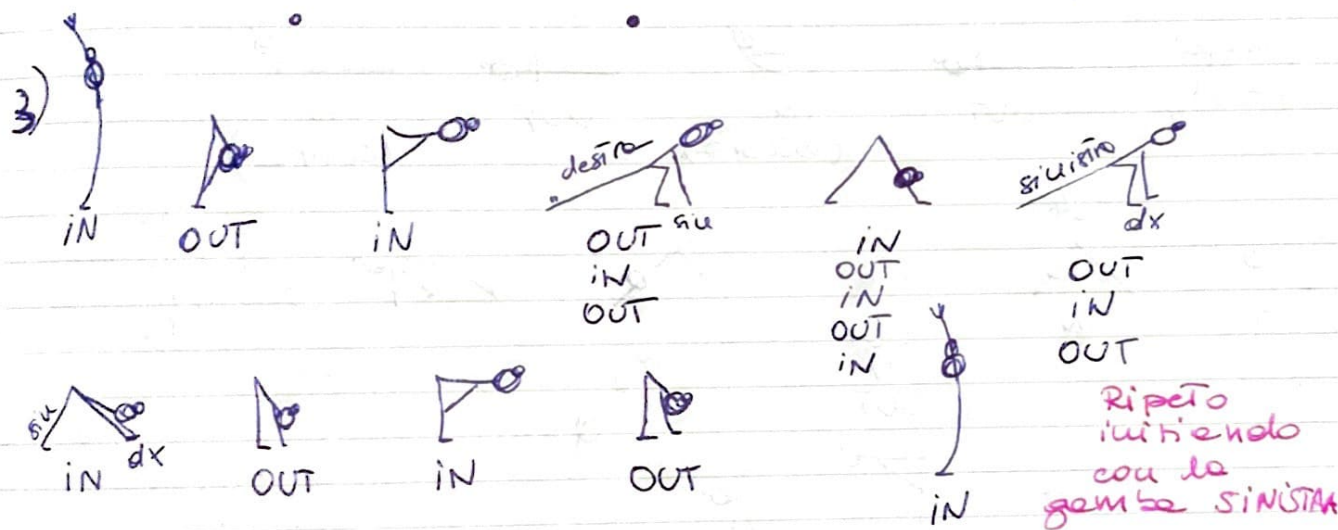 3)
iN
OUT
iN
destra
siu
OUT
iN
OUT
iN
OUT
iN
OUT
iN
sinistra
dx
OUT
iN
OUT
sin
dx
iN
OUT
iN
OUT
iN
Ripeto
iniziando
con la
gamba SINISTRA